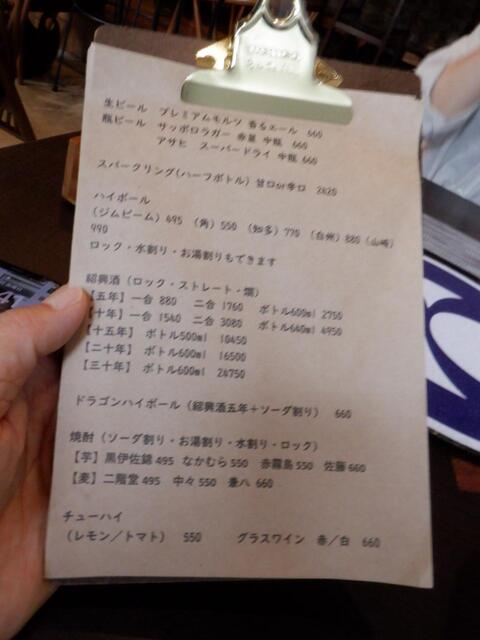 生ビール　プレミアムモルツ 香るエール　660
瓶ビール　サッポロラガー 赤星 中瓶　660
アサヒ　スーパードライ 中瓶 660
スパークリング(ハーフボトル) 甘口or辛口　2420
ハイボール
(ジムビーム) 495　(角) 550　(知多) 770　(白州) 880 (山崎)
990
ロック・水割り・お湯割りもできます
紹興酒 (ロック・ストレート・燗)
【五年】一合 880　二合 1760　ボトル600ml 2750
【十年】一合 1540　二合 3080　ボトル640ml 4950
【十五年】　ボトル500ml　10450
【二十年】　ボトル600ml　16500
【三十年】　ボトル600ml　24750
ドラゴンハイボール (紹興酒五年+ソーダ割り)　660
焼酎 (ソーダ割り・お湯割り・水割り・ロック)
【芋】黒伊佐錦 495　なかむら 550　赤霧島 550　佐藤 660
【麦】二階堂 495　中々 550　兼八 660
チューハイ
(レモン/トマト)　550　グラスワイン　赤/白　660